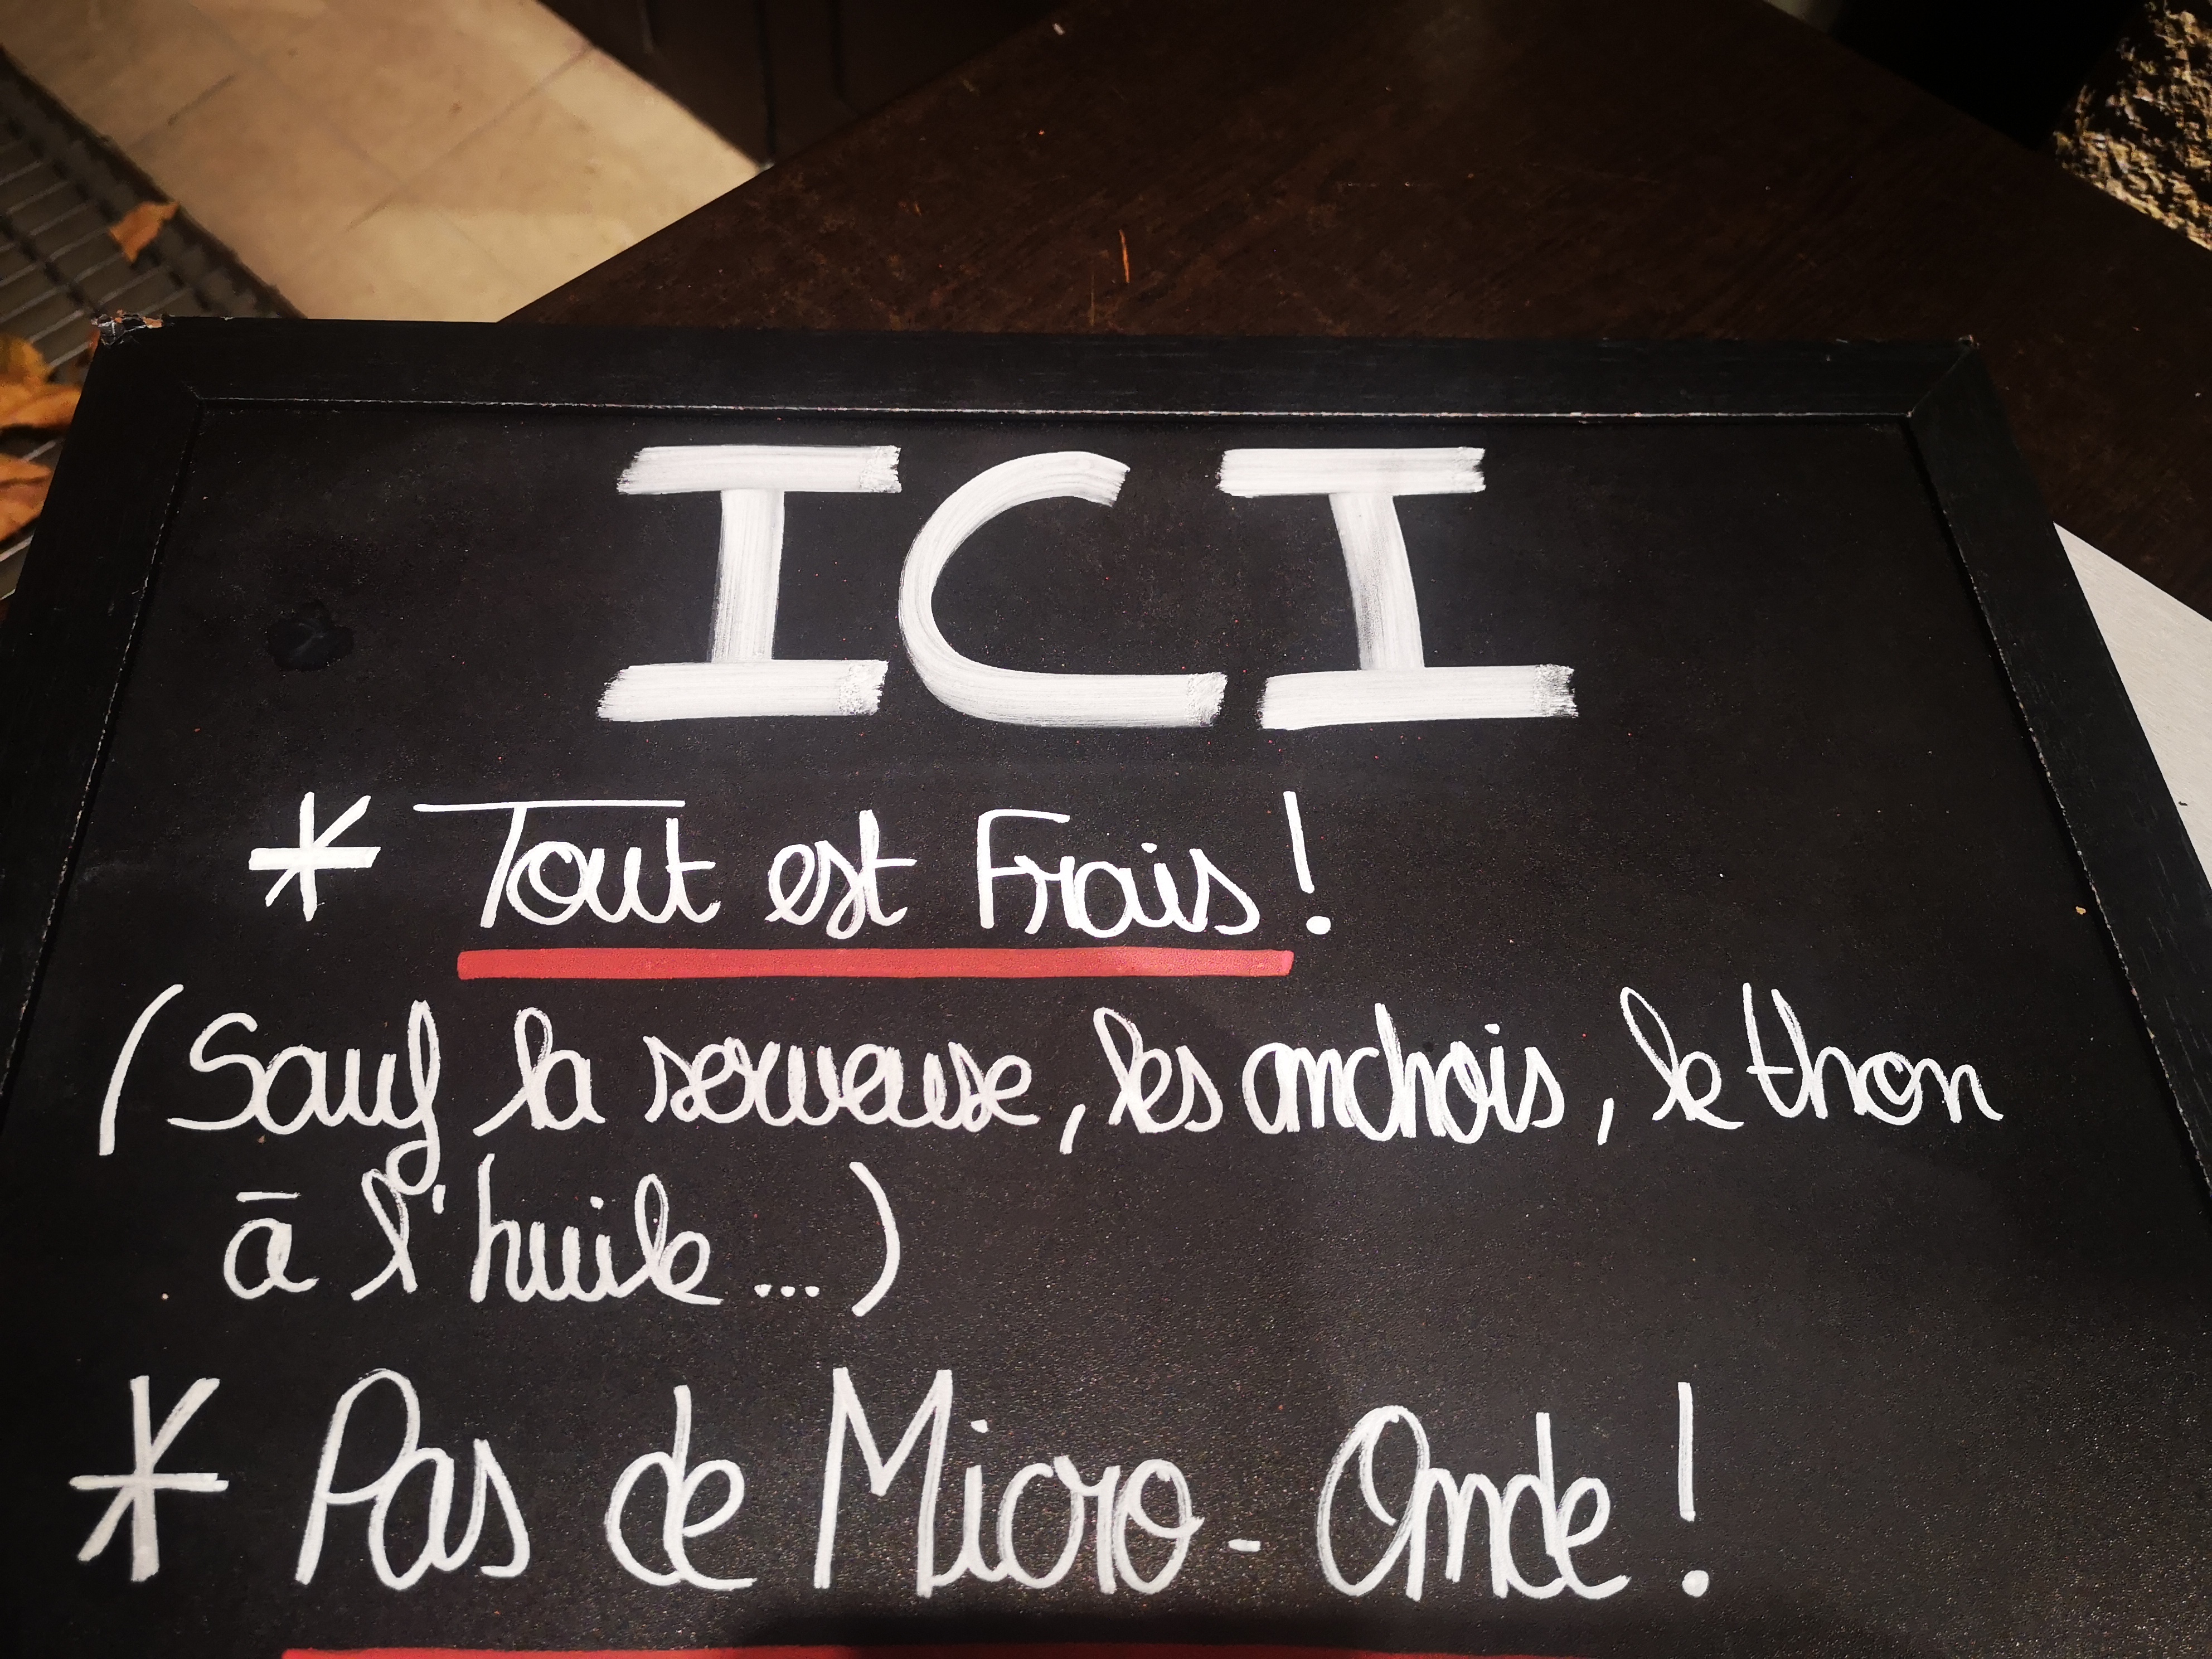 ICI
* Tout est Frais !
(Sauf la serveuse, les anchois, le thon
à l'huile ...)
* Pas de Micro-Onde !